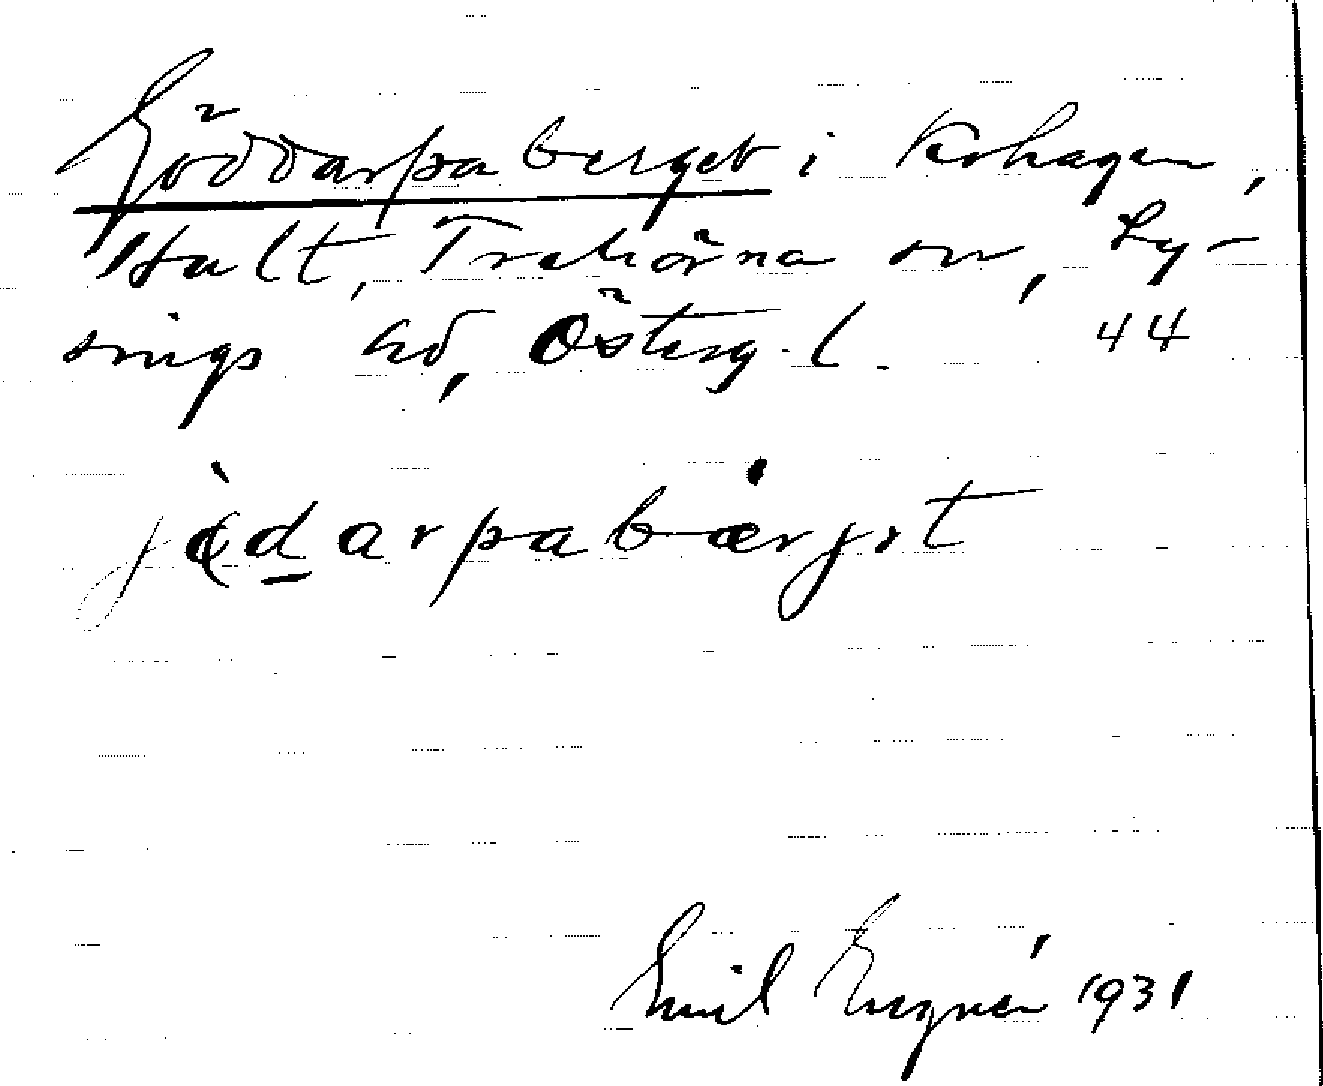 Göddarpaberget i Kohagen,
Hult, Trehörna sn, Ly-
sings hd, Österg. l. 44
jödarpabærjət
Emil Engnér 1931